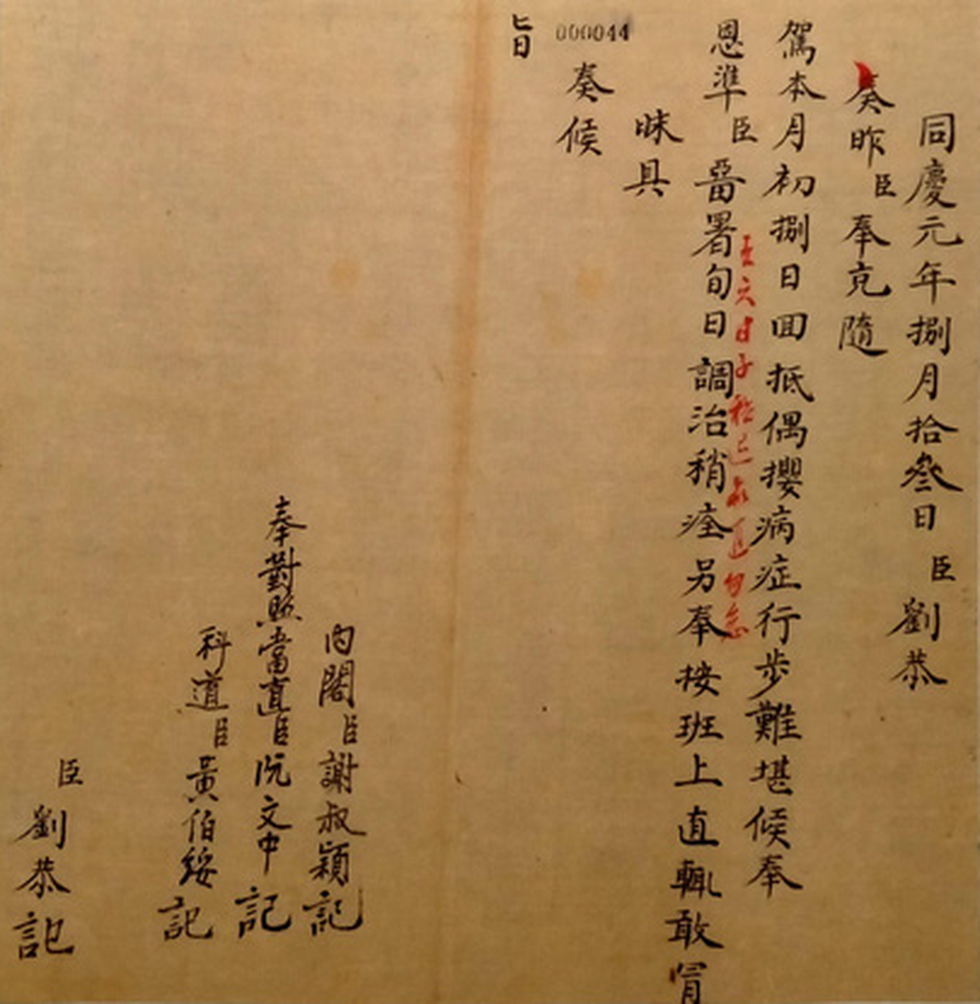 同慶元年捌月拾叄日臣劉恭
奏昨臣奉充隨
駕本月初捌日囬抵偶攖病症行步難堪候奉
五六日子稍已直勿怠
恩準臣畱署旬日調治稍痊另奉按班上直輒敢冒
昧具
000044
奏候
旨
內閣臣謝叔穎記
奉對照當直臣阮文中記
科道臣黃伯綏記
臣劉恭記